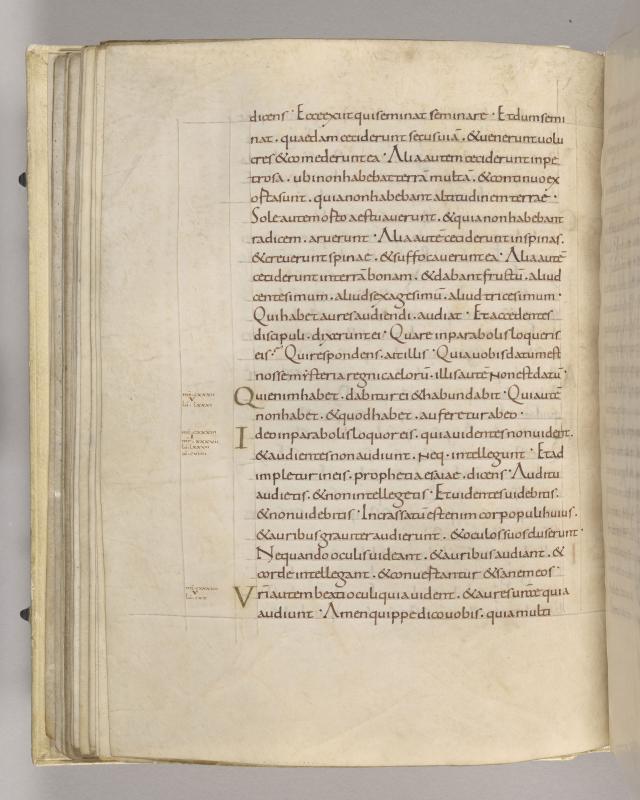 dicens · Ecce exiit qui seminat seminare · Et dum semi
nat · quaedam ceciderunt secus uiā · & uenerunt uolu
cres & comederunt ea · Alia autem ceciderunt in pe
trosa · ubi non habebat terrā multā · & continuo ex
orta sunt · quia non habebant altitudinem terrae ·
Sole autem orto aestuauerunt · & quia non habebant
radicem · aruerunt · Alia autē ceciderunt in spinas ·
& creuerunt spinae · & suffocauerunt ea · Alia autē
ceciderunt in terrā bonam · & dabant fructū · aliud
centesimum · aliud sexagesimū · aliud tricesimum ·
Qui habet aures audiendi · audiat · Et accedentes
discipuli · dixerunt ei · Quare in parabolis loqueris
eis · Qui respondens · ait illis · Quia uobis datum est
nosse mysteria regni caelorū · illis autē non est datū ·
Qui enim habet · dabitur ei & habundabit · Qui autē
non habet · & quod habet · auferetur ab eo ·
Ideo in parabolis loquor eis · quia uidentes non uident ·
& audientes non audiunt · neq · intellegunt · Et ad
impletur in eis · prophetia esaiae · dicens · Auditu
audietis · & non intellegetis · Et uidentes uidebitis ·
& non uidebitis · Incrassatū est enim cor populi huius ·
& auribus grauiter audierunt · & oculos suos cluserunt ·
Nequando oculis uideant · & auribus audiant · &
corde intellegant · & conuertantur & sanem eos ·
Vr̄i autem beati oculi quia uident · & aures ur̄ae quia
audiunt · Amen quippe dico uobis · quia multi